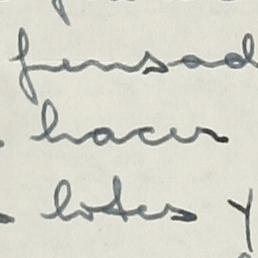 pensad
hacer
lotes y